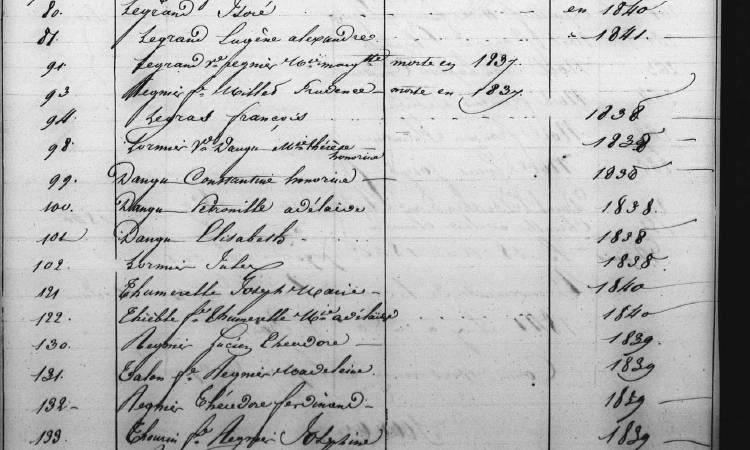 80. Legrand Isoré en 1840
81. Legrand Eugène alexandre 1841.
91. Legrand Ve Regnier Marie morte en 1837.
93 Regnier fe Millet Prudence morte en 1837.
94 Legras François 1838
98. Lormier Ve Dangu Mie thérèse honorine 1838
99. Dangu Constantine honorine 1838
100. Dangu Petronille adélaide 1838.
101 Dangu Elisabeth 1838
102. Lormier Jules 1838.
121 Thumerelle Joseph Marie 1840
122. fe Thumerelle Mie adélaide 1840
130. Regnier Lucien Theodore 1839.
131. Talon fe Regnier Madeleine 1839
132 Regnier Théodore ferdinand 1839
133. fe Regnier Joséphine 1839